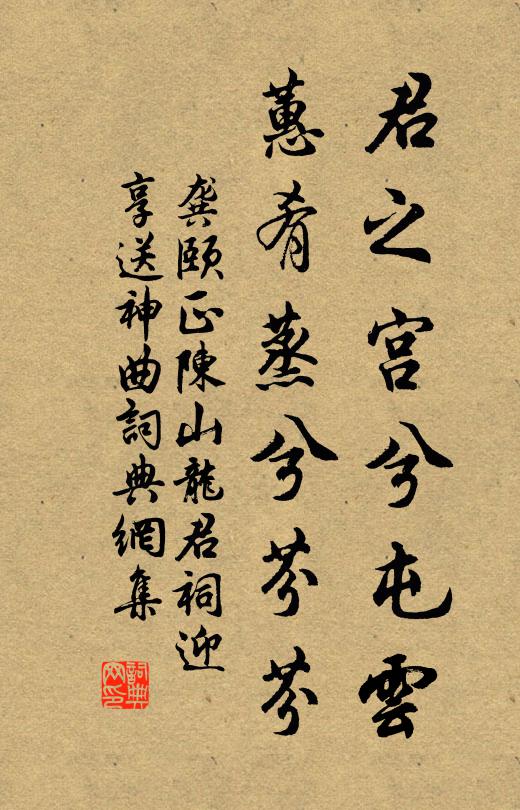 君之宫兮屯雲
蕙肴蒸兮芬芬
龔頤正陳山龍君祠迎
享送神曲詞典網集
詞典
网印